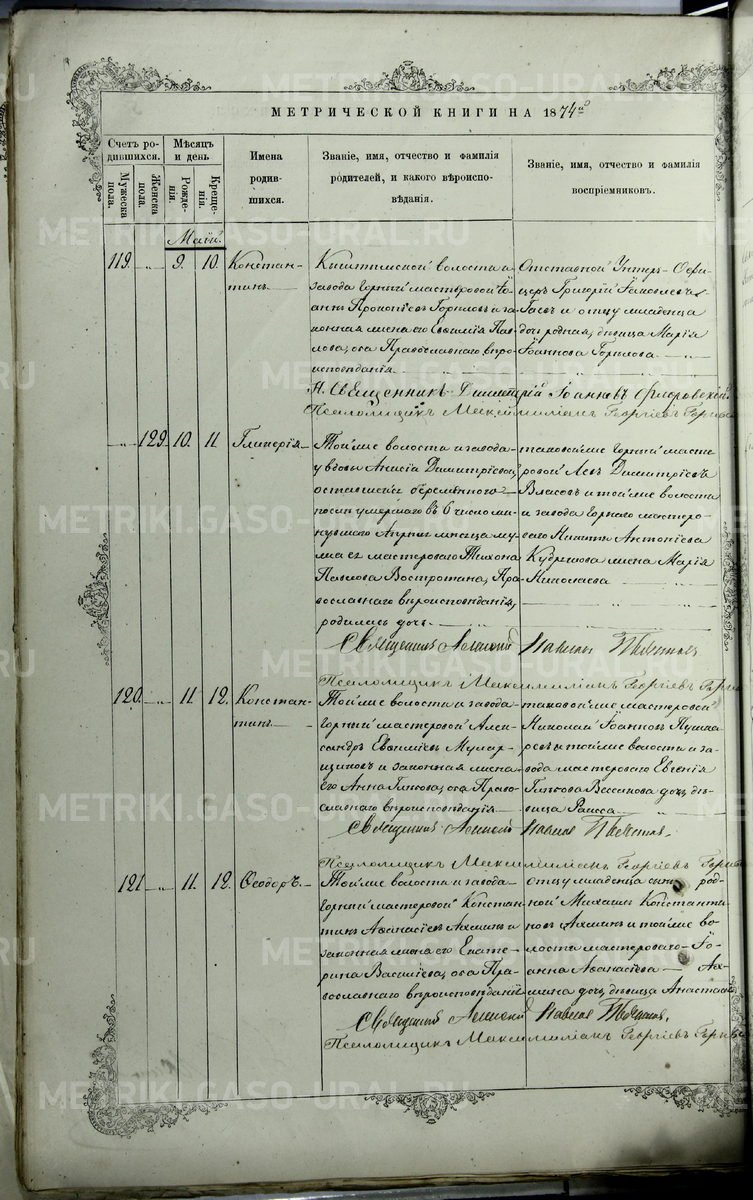 МЕТРИЧЕСКОЙ КНИГИ НА 1874го
Счетъ родившихся.
Мужеска пола.
Женска пола.
Мѣсяцъ и день
Рожденія.
Крещенія.
Имена родившихся.
Званіе, имя, отчество и фамилія родителей, и какого вѣроисповѣданія.
Званіе, имя, отчество и фамилія воспріемниковъ.
Май.
119.
9.
10.
Констан-
тинъ
Кыштымской волости и
завода горный мастеровой Іо-
аннъ Прокопіевъ Горшковъ и за-
конная жена его Евфимія Пав-
лова, оба Православнаго вѣро-
исповѣданія
Отставной Унтеръ-Офи-
церъ Григорій Іаковлевъ
и отцу младенца
дочь родная, дѣвица Марія
Іоаннова Горшкова
Священникъ Димитрій Іоанновъ
Псаломщикъ Максимиліанъ Георгіевъ
129.
10.
11.
Гликерія
Той же волости и завода
у вдовы Анисіи Димитріевой,
оставшейся беременною
послѣ умершаго въ 6 число ми-
нувшаго Апрѣля мѣсяца му-
жа ея мастероваго Тихона
Павлова Востротина, Пра-
вославнаго вѣроисповѣданія,
родилась дочь
таковой же горный масте-
ровой Левъ Димитріевъ
Власовъ и той же волости
и завода горнаго мастеро-
ваго Никиты Антоніева
жена Марія
Николаева
Священникъ Алексій
Псаломщикъ Максимиліанъ Георгіевъ
120.
11.
12.
Констан-
тинъ
Той же волости и завода
горный мастеровой Алек-
сандръ Евфиміевъ Муляр-
щиковъ и законная жена
его Анна Глѣбова, оба Право-
славнаго вѣроисповѣданія
таковой же мастеровой
Николай Іоанновъ Пушка-
ревъ и той же волости и за-
вода мастероваго Евгенія
дочь, дѣ-
вица Раисса
Священникъ Алексій
Псаломщикъ Максимиліанъ Георгіевъ
121
11.
12.
Ѳеодоръ.
Той же волости и завода
горный мастеровой Констан-
тинъ Аѳанасіевъ Ахминъ и
законная жена его Екате-
рина Васильева, оба Пра-
вославнаго вѣроисповѣданія
Отцу младенца сынъ род-
ной Михаилъ Константи-
новъ Ахминъ и той же во-
лости мастероваго Іо-
анна Аѳанасіева Ах-
мина дочь, дѣвица Анастасія
Священникъ Алексій
Псаломщикъ Максимиліанъ Георгіевъ
METRIKI.GASO-URAL.RU